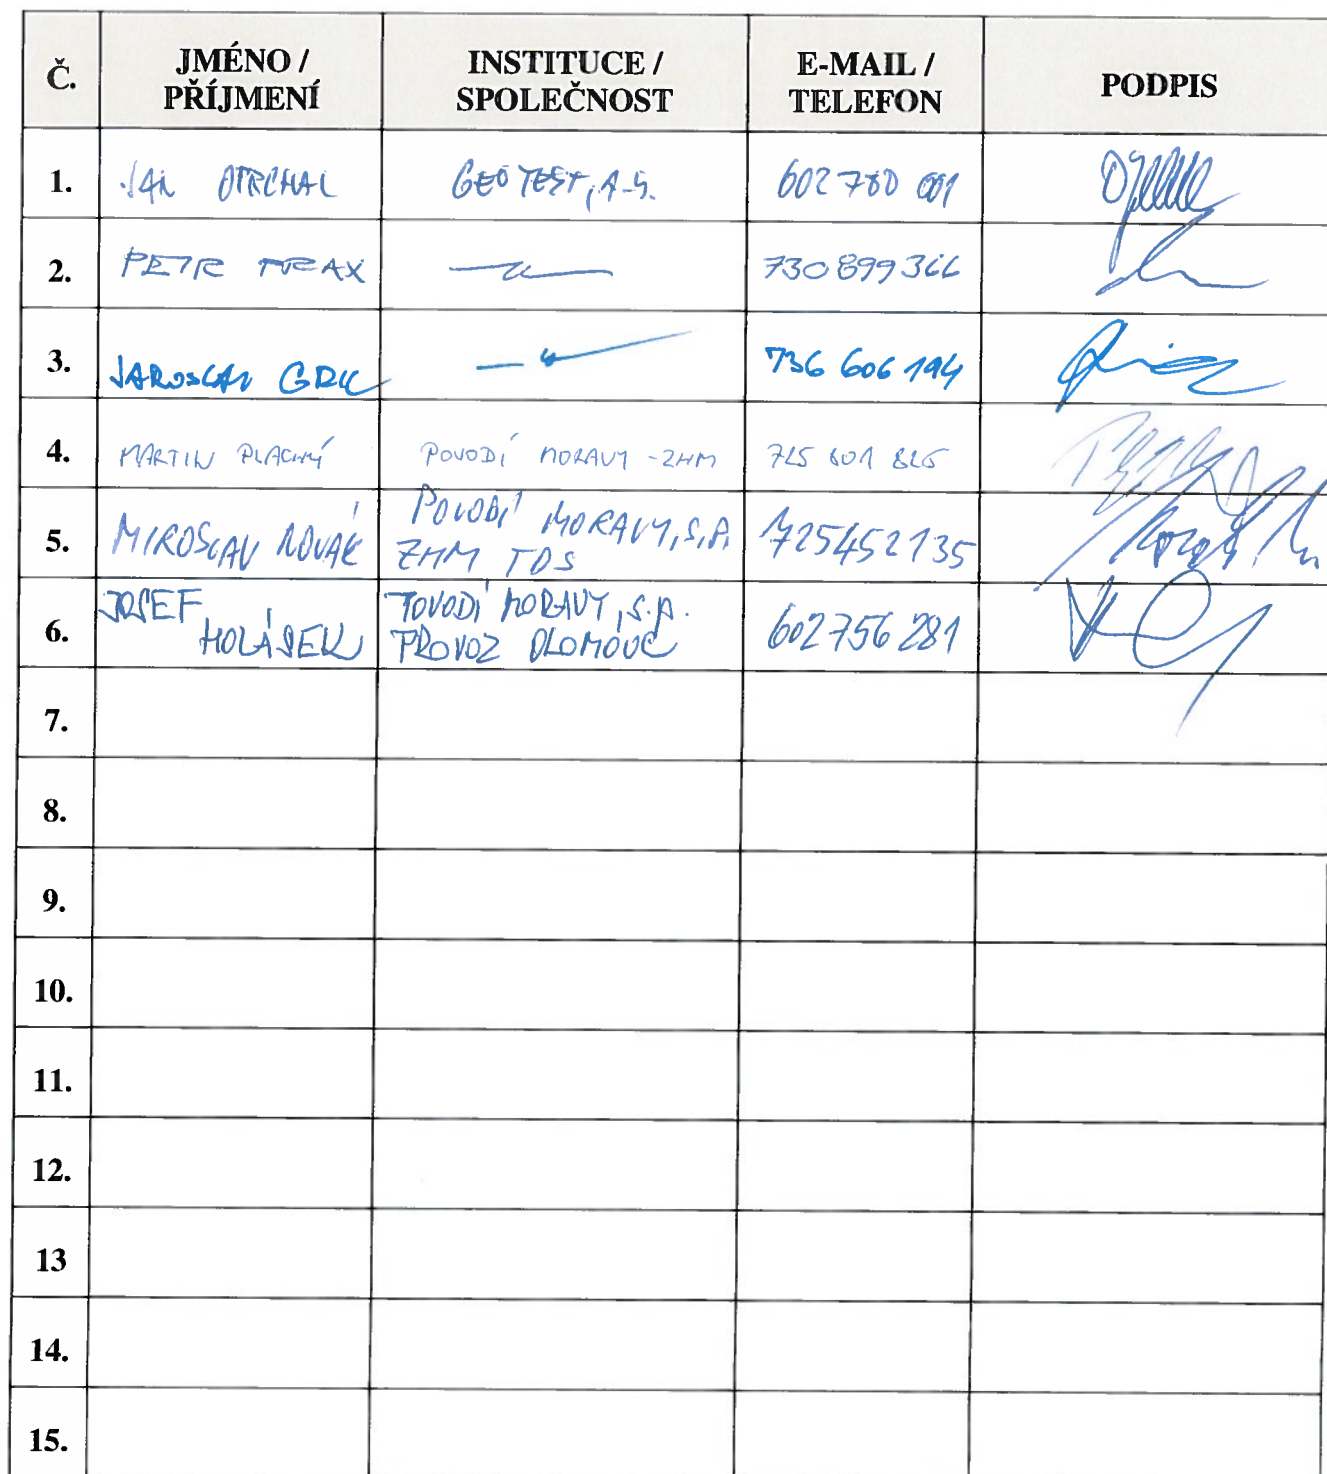 Č. JMÉNO / PŘÍJMENÍ INSTITUCE / SPOLEČNOST E-MAIL / TELEFON PODPIS
1. JAN OTRCHAL GEOTEST, A.S. 602 780 001
2. PETR TRAX 730 899 366
3. JAROSLAV 736 606 194
4. MARTIN PLACHÝ POVODÍ MORAVY - ZHM 725 601 825
5. MIROSLAV NOVÁK POVODÍ MORAVY, S.P. ZHM TDS 725452135
6. JOSEF HOLÁSEK POVODÍ MORAVY, S.P. PROVOZ OLOMOUC 602 756 281
7.
8.
9.
10.
11.
12.
13
14.
15.